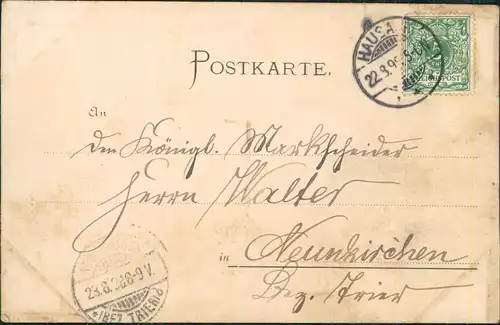 POSTKARTE.
HAUSA
22.8.98 5-6N
REICHSPOST
An
den Königl. Markscheider
Herrn Walter
in Neunkirchen
Bez. Trier
23.8.98 8-9 V.
(BEZ. TRIER)